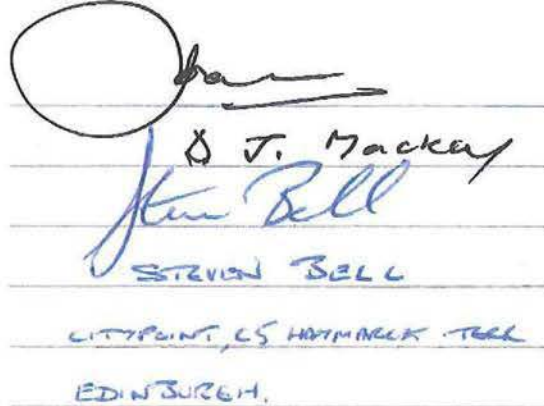 D J. Mackay
Steven Bell
STEVEN BELL
CITYPOINT, 65 HAYMARKET TERR
EDINBURGH.